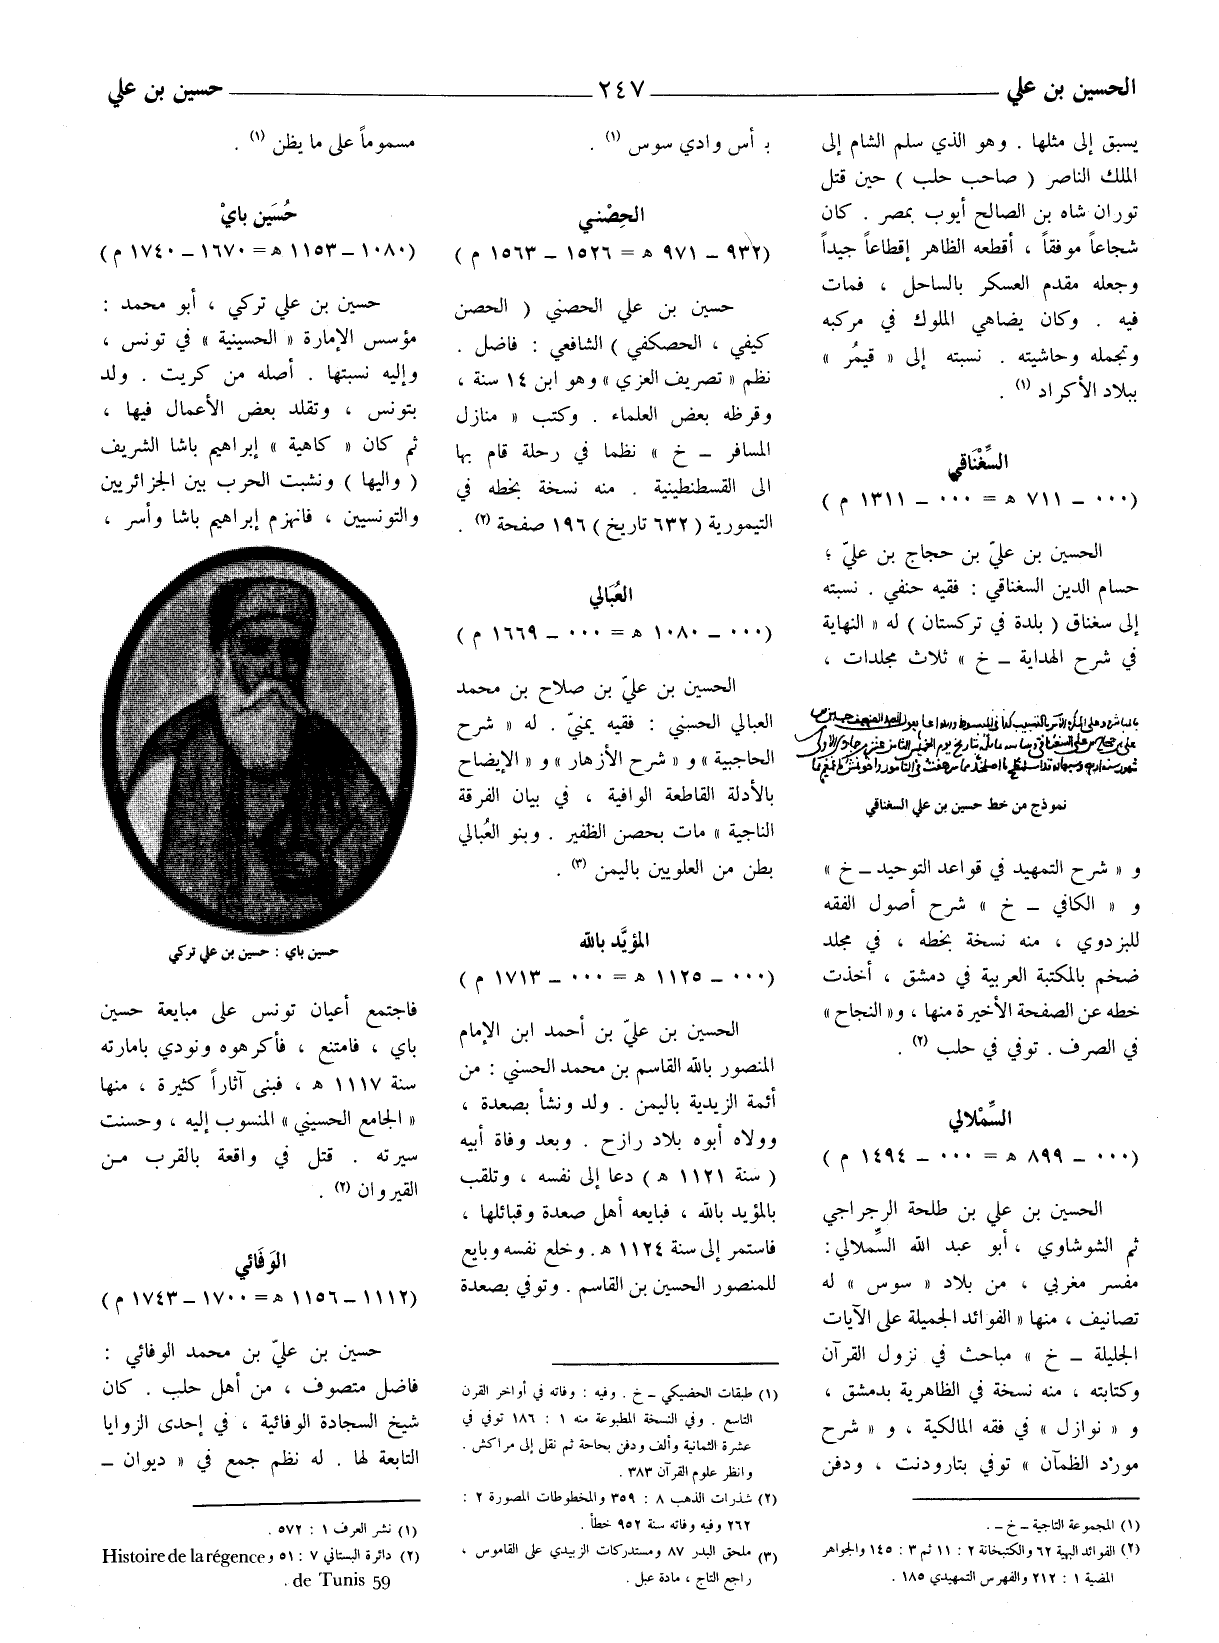 الحسين بن علي ٢٤٧ حسين بن علي
يسبق إلى مثلها . وهو الذي سلم الشام إلى
الملك الناصر ( صاحب حلب ) حين قتل
توران شاه بن الصالح أيوب بمصر . كان
شجاعاً موفقاً ، أقطعه الظاهر إقطاعاً جيداً
وجعله مقدم العسكر بالساحل ، فمات
فيه . وكان يضاهي الملوك في مركبه
وتجمله وحاشيته . نسبته إلى « قيمُر »
ببلاد الأكراد (١) .
السِّغْنَاقي
(٠٠٠ ــ ٧١١ هـ = ٠٠٠ ــ ١٣١١ م )
الحسين بن عليّ بن حجاج بن عليّ ؛
حسام الدين السغناقي : فقيه حنفي . نسبته
إلى سغناق ( بلدة في تركستان ) له « النهاية
في شرح الهداية ــ خ » ثلاث مجلدات ،
نموذج من خط حسين بن علي السغناقي
و « شرح التمهيد في قواعد التوحيد ــ خ »
و « الكافي ــ خ » شرح أصول الفقه
للبزدوي ، منه نسخة بخطه ، في مجلد
ضخم بالمكتبة العربية في دمشق ، أخذت
خطه عن الصفحة الأخيرة منها ، و« النجاح »
في الصرف . توفي في حلب (٢) .
السِّمْلالي
(٠٠٠ ــ ٨٩٩ هـ = ٠٠٠ ــ ١٤٩٤ م )
الحسين بن علي بن طلحة الرجراجي
ثم الشوشاوي ، أبو عبد الله السِّملالي :
مفسر مغربي ، من بلاد « سوس » له
تصانيف ، منها « الفوائد الجميلة على الآيات
الجليلة ــ خ » مباحث في نزول القرآن
وكتابته ، منه نسخة في الظاهرية بدمشق ،
و « نوازل » في فقه المالكية ، و « شرح
مورْد الظمآن » توفي بتارودنت ، ودفن
(١) المجموعة التاجية ــ خ ــ .
(٢) الفوائد البهية ٦٢ والكتبخانة ٢ : ١١ ثم ٣ : ١٤٥ والجواهر
المضية ١ : ٢١٢ والفهرس التمهيدي ١٨٥ .
بـ أس وادي سوس (١) .
الحِصْني
(٩٣٢ ــ ٩٧١ هـ = ١٥٢٦ ــ ١٥٦٣ م )
حسين بن علي الحصني ( الحصن
كيفي ، الحصكفي ) الشافعي : فاضل .
نظم « تصريف العزي » وهو ابن ١٤ سنة ،
وقرظه بعض العلماء . وكتب « منازل
المسافر ــ خ » نظما في رحلة قام بها
الى القسطنطينية . منه نسخة بخطه في
التيمورية ( ٦٣٢ تاريخ ) ١٩٦ صفحة (٢) .
العُبَالي
(٠٠٠ ــ ١٠٨٠ هـ = ٠٠٠ ــ ١٦٦٩ م )
الحسين بن عليّ بن صلاح بن محمد
العبالي الحسني : فقيه يمنيّ . له « شرح
الحاجبية » و « شرح الأزهار » و « الإيضاح
بالأدلة القاطعة الوافية ، في بيان الفرقة
الناجية » مات بحصن الظفير . وبنو العُبالي
بطن من العلويين باليمن (٣) .
المؤيَّد بالله
(٠٠٠ ــ ١١٢٥ هـ = ٠٠٠ ــ ١٧١٣ م )
الحسين بن عليّ بن أحمد ابن الإمام
المنصور بالله القاسم بن محمد الحسني : من
أئمة الزيدية باليمن . ولد ونشأ بصعدة ،
وولاه أبوه بلاد رازح . وبعد وفاة أبيه
( سنة ١١٢١ هـ ) دعا إلى نفسه ، وتلقب
بالمؤيد بالله ، فبايعه أهل صعدة وقبائلها ،
فاستمر إلى سنة ١١٢٤ هـ . وخلع نفسه وبايع
للمنصور الحسين بن القاسم . وتوفي بصعدة
(١) طبقات الحضيكي ــ خ . وفيه : وفاته في أواخر القرن
التاسع . وفي النسخة المطبوعة منه ١ : ١٨٦ توفي في
عشرة الثمانية وألف ودفن بحاحة ثم نقل إلى مراكش .
وانظر علوم القرآن ٣٨٣ .
(٢) شذرات الذهب ٨ : ٣٥٩ والمخطوطات المصورة ٢ :
٢٦٢ وفيه وفاته سنة ٩٥٢ خطأ .
(٣) ملحق البدر ٨٧ ومستدركات الزبيدي على القاموس ،
راجع التاج ، مادة عبل .
مسموماً على ما يظن (١) .
حُسَين بايْ
(١٠٨٠ ــ ١١٥٣ هـ = ١٦٧٠ ــ ١٧٤٠ م )
حسين بن علي تركي ، أبو محمد :
مؤسس الإمارة « الحسينية » في تونس ،
وإليه نسبتها . أصله من كريت . ولد
بتونس ، وتقلد بعض الأعمال فيها ،
ثم كان « كاهية » إبراهيم باشا الشريف
( واليها ) ونشبت الحرب بين الجزائريين
والتونسيين ، فانهزم إبراهيم باشا وأسر ،
حسين باي : حسين بن علي تركي
فاجتمع أعيان تونس على مبايعة حسين
باي ، فامتنع ، فأكرهوه ونودي بامارته
سنة ١١١٧ هـ ، فبنى آثاراً كثيرة ، منها
« الجامع الحسيني » المنسوب إليه ، وحسنت
سيرته . قتل في واقعة بالقرب من
القيروان (٢) .
الوَفَائي
(١١١٢ ــ ١١٥٦ هـ = ١٧٠٠ ــ ١٧٤٣ م )
حسين بن عليّ بن محمد الوفائي :
فاضل متصوف ، من أهل حلب . كان
شيخ السجادة الوفائية ، في إحدى الزوايا
التابعة لها . له نظم جمع في « ديوان ــ
(١) نشر العرف ١ : ٥٧٢ .
(٢) دائرة البستاني ٧ : ٥١ و Histoire de la régence
de Tunis 59 .